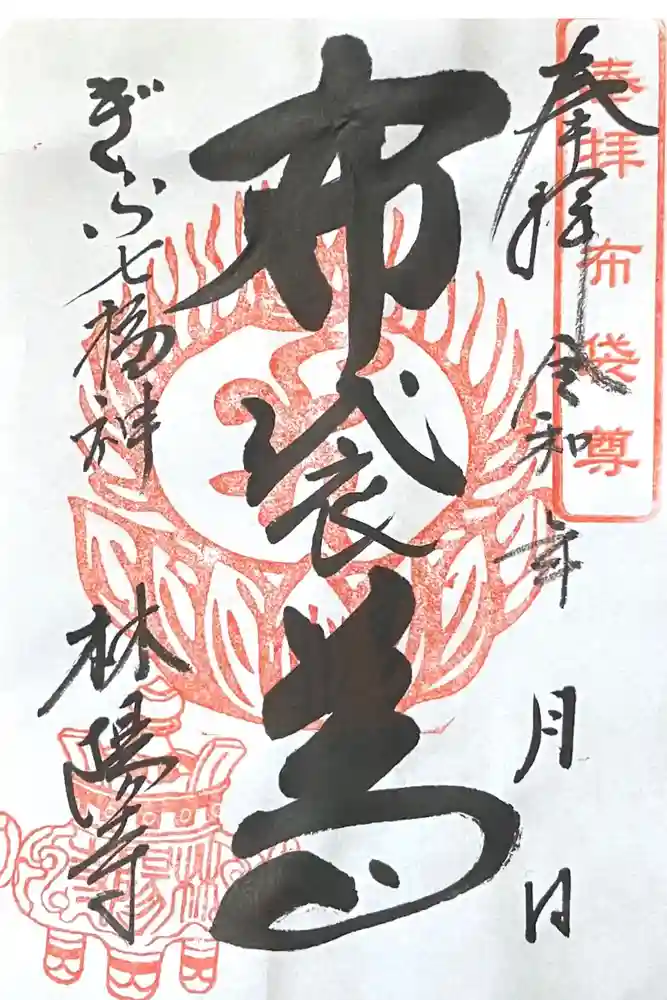 奉拝 令和 年 月 日
奉拝 布袋尊
布袋尊
ぎふ七福神 林陽寺